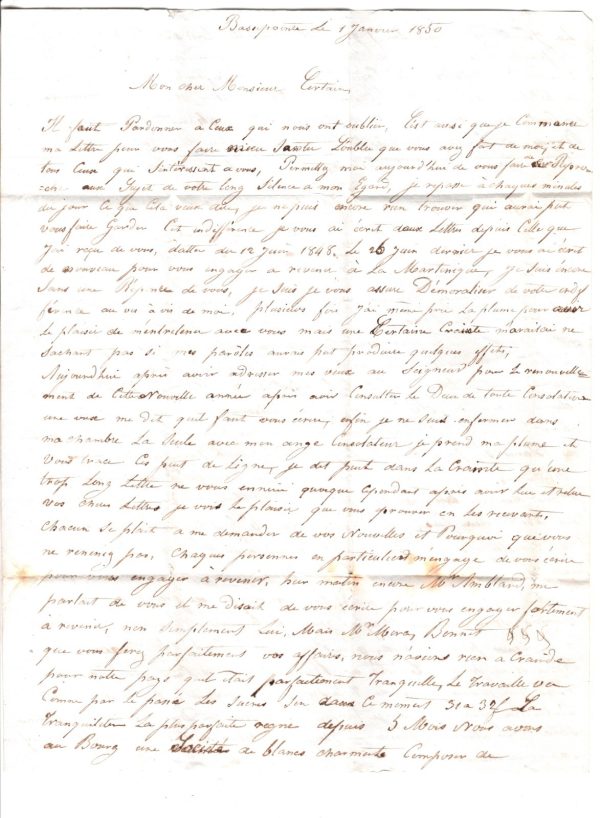 Bassepointe le 1 Janvier 1850
Mon cher Monsieur Certain,
Il faut Pardonner a Ceux qui nous ont oublier, C'est ainsi que je Commence
ma Lettre pour vous faire sentir L'oublie que vous avez fait de moi, et de
tous Ceux qui S'interessent a vous, Permettez moi aujourd'hui de vous faire
aux Sujet de votre long Silence a mon Egard, je repasse à chaques minutes
du jour Ce que Cela veux dire, je ne puis encore rien trouver qui aurai put
vous faire Garder Cet indifférence je vous ai écrit deux Lettres depuis Celle que
J'ai reçu de vous, datter du 12 Juin 1848. Le 26 Juin dernier je vous ai écrit
de nouveau pour vous engager a revenir a La Martinique, je Suis encore
Sans une Réponse de vous, je Suis je vous assure Démoraliser de votre indif
férence au vis à vis de moi, plusieurs fois J'ai même pris La plume pour avoir
Le plaisir de m'entretenir avec vous mais une Certaine Crainte m'arêtait ne
Sachant pas si mes parôles aurais put produire quelques effets,
Aujourdhui après avoir adresser mes vœux au Seigneur pour Le renouvelle-
ment de Cette Nouvelle année après avoir Consulter Le Dieu de toute Consolation
une voix me dit qu'il faut vous écrire, enfin je me Suis enfermer dans
ma chambre La Seule avec mon ange Consolateur je prend ma plume et
Vous trace Ces peut de Ligne, je dit peut dans La Crainte qu'une
trop Long Lettre ne vous ennuie quoique Cependant après avoir Lue et relue
vos chères Lettres je vois Le plaisir que vous prouver en Les recevants,
Chacun Se plait a me demander de vos Nouvelles et Pourquoi que vous
ne revenez pas, Chaques personnes en particuliers m'engage de vous écrire
pour vous engager à revenir, hier matin encore Mr Amblard, me
parlait de vous et me disait de vous écrire pour vous engager fortement
a revenir, non Simplement Lui, Mais Mr Mora, Bonnet
que vous ferez parfaitement vos affaires, nous n'avons rien a Craindre
pour notre pays qu'il était parfaitement Tranquille, Le Travaille va
Comme par le passé Les Sucres Son dans Ce moment 31 a 32f La
Tranquilité La plus parfaite règne depuis 5 Mois Nous avons
au Bourg une Société de blancs charmante Composer de